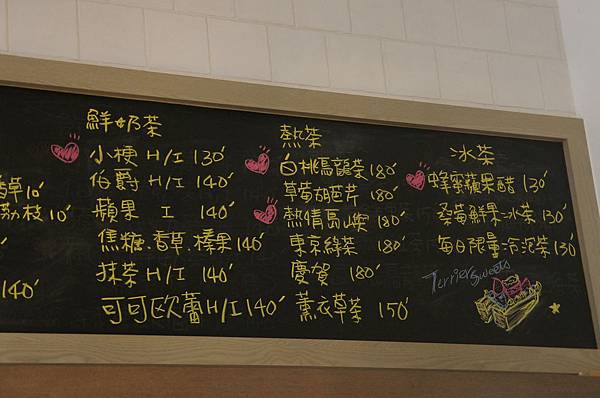 香草10'
荔枝10'
140'
鮮奶茶
小梗 H/I 130'
伯爵 H/I 140'
蘋果 I 140'
焦糖.香草.榛果140'
抹茶 H/I 140'
可可歐蕾H/I 140'
熱茶
白桃烏龍茶180'
草莓胡芭芹 180'
熱情島嶼 180'
東京綠茶 180'
慶賀 180'
薰衣草茶 150'
冰茶
蜂蜜蘋果醋 130'
桑莓鮮果冰茶130'
每日限量冷泡茶130'
Terrier Sweets